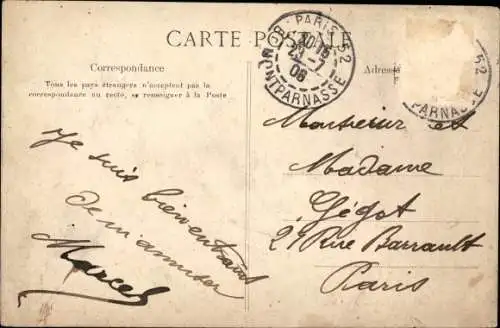 CARTE POSTALE
Correspondance
Tous les pays étrangers n'acceptent pas la
correspondance au recto, se renseigner à la Poste
Adresse
PARIS 52
10 15
23 - 7
08
MONTPARNASSE
52
PARNASSE
Je suis bien en train
de m'amuser
Marcel
Monsieur et
Madame
Gégot
21 Rue Barrault
Paris